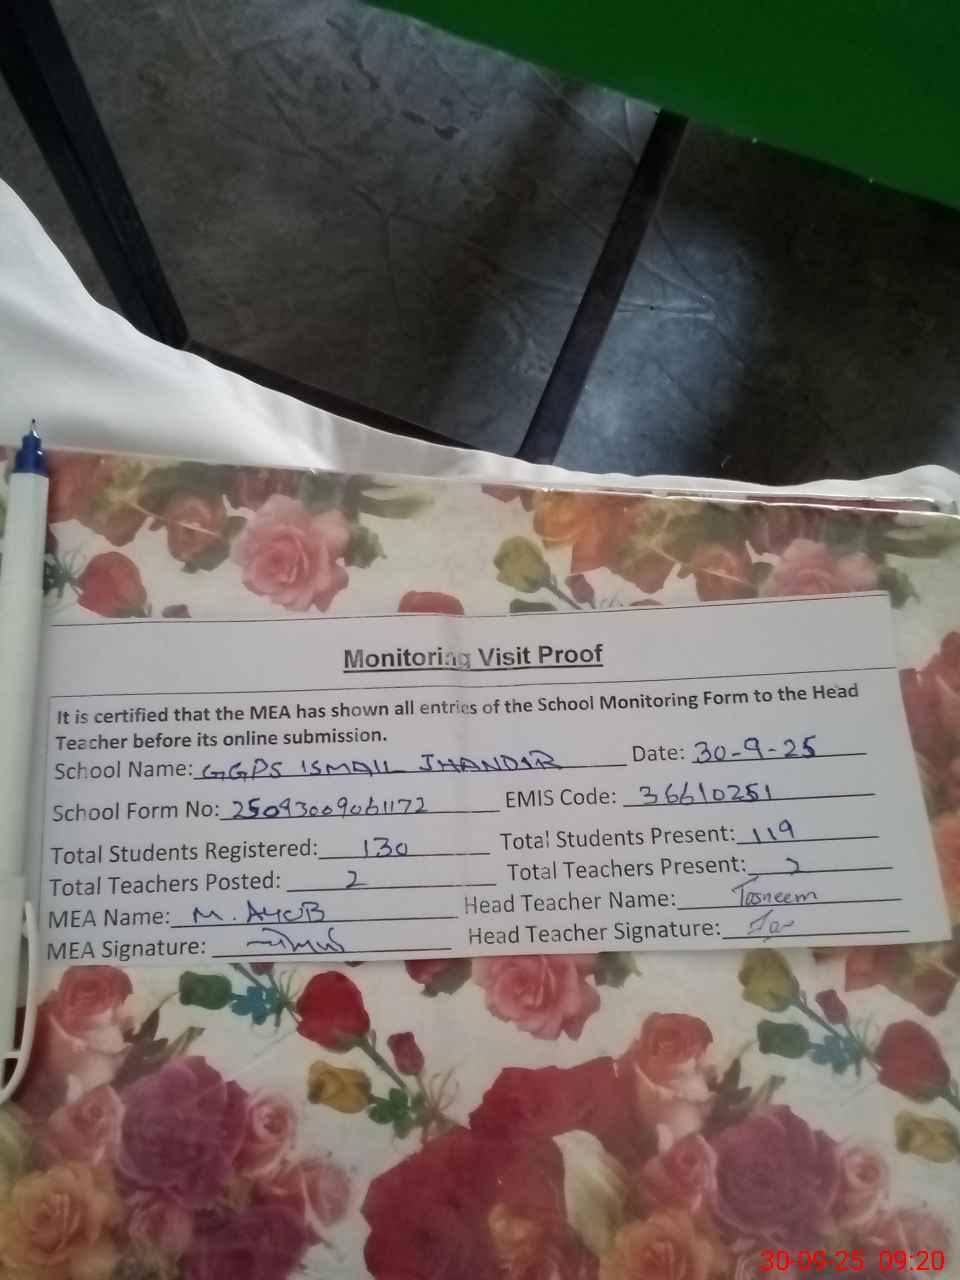 Monitoring Visit Proof
It is certified that the MEA has shown all entries of the School Monitoring Form to the Head
Teacher before its online submission.
School Name: GGPS ISMAIL JHANDIR Date: 30-9-25
School Form No: 25093009061172 EMIS Code: 36610251
Total Students Registered: 130 Total Students Present: 119
Total Teachers Posted: 2 Total Teachers Present: 2
MEA Name: M. AYUB Head Teacher Name: Tasneem
MEA Signature: Head Teacher Signature:
30-09-25 09:20